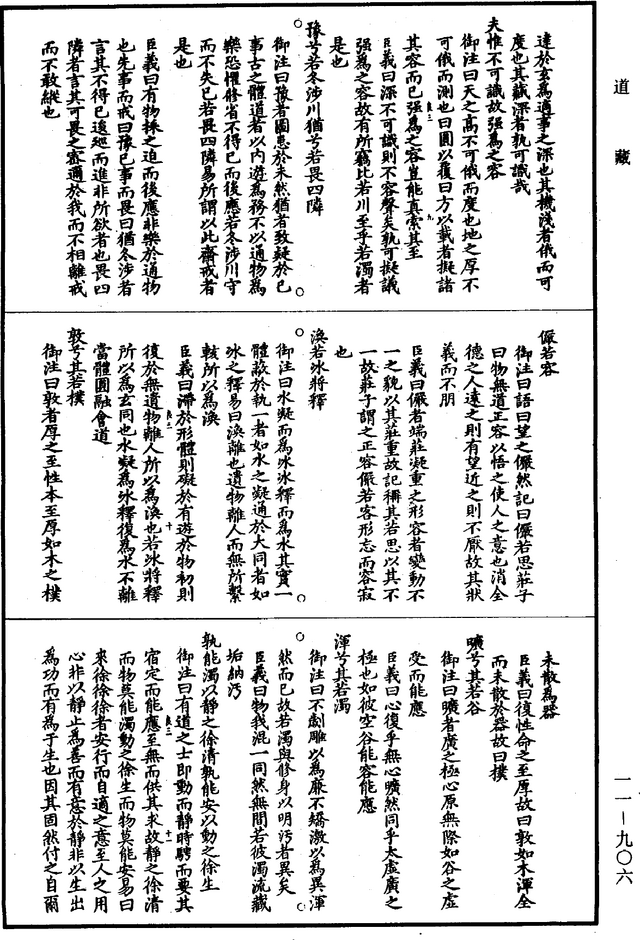 道藏
達於玄為適事之深也其機淺者俄而可
度也其藏深者孰可識哉
夫惟不可識故強為之容
御注曰天之高不可俄而度也地之厚不
可俄而測也曰圓以覆曰方以載者擬諸
其容而已強為之容豈能真索其至
臣義曰深不可識則不容聲矣孰可擬議
強為之容故有所竊比若川至乎若濁者
是也
豫兮若冬涉川猶兮若畏四隣
御注曰豫者圖患於未然猶者致疑於已
事古之體道者以內遊為務不以通物為
樂恐懼修省不得已而後應若冬涉川守
而不失已若畏四隣易所謂以此齋戒者
是也
臣義曰有物採之迫而後應非樂於通物
也先事而戒曰豫已事而畏曰猶冬涉者
言其不得已逡廵而進非所欲者也畏四
隣者言其可畏之密邇於我而不相離戒
而不敢縱也
儼若容
御注曰語曰望之儼然記曰儼若思莊子
曰物無道正容以悟之使人之意也消全
德之人遠之則有望近之則不厭故其狀
義而不朋
臣義曰儼者端莊凝重之形容者變動不
一之貌以其莊重故記稱其若思以其不
一故莊子謂之正容儼若客形忘而容寂
也
渙若冰將釋
御注曰水凝而為冰冰釋而為水其實一
體蔽於執一者如水之凝通於大同者如
冰之釋易曰渙離也遺物離人而無所繫
輆所以為渙
臣義曰滯於形體則礙於有遊於物初則
復於無遺物離人所以為渙也若冰將釋
所以為玄同也水凝為冰釋復為水不離
當體圓融會道
敦兮其若樸
御注曰敦者厚之至性本至厚如木之樸
未散為器
臣義曰復性命之至厚故曰敦如木渾全
而未散於器故曰樸
曠兮其若谷
御注曰曠者廣之極心原無際如谷之虛
受而能應
臣義曰心復乎無心曠然同乎太虛廣之
極也如彼空谷能容能應
渾兮其若濁
御注曰不劌雕以為廉不矯激以為異渾
然而已故若濁與修身以明污者異矣
臣義曰物我混一同然無間若彼濁流藏
垢納污
孰能濁以靜之徐清孰能安以動之徐生
御注曰有道之士即動而靜時騁而要其
宿定而能應至無而供其求故靜之徐清
而物莫能濁動之徐生而物莫能安易曰
來徐徐徐者安行而自適之意至人之用
心非以靜止為善而有意於靜非以生出
為功而有為于生也因其固然付之自爾
一一—九〇六